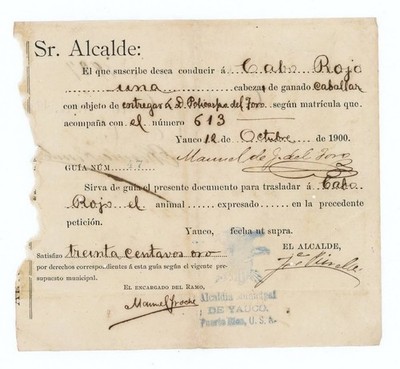 Sr. Alcalde:
El que suscribe desea conducir á Cabo Rojo
una cabezas de ganado caballar
con objeto de entregar á D. Policarpa del Toro según matrícula que
acompaña con el número 613
Yauco 12 de Octubre de 1900.
Manuel de J. del Toro
GUÍA NÚM 7
Sirva de guía el presente documento para trasladar á Cabo
Rojo el animal expresado en la precedente
petición.
Yauco, fecha ut supra.
EL ALCALDE,
Satisfizo treinta centavos oro
por derechos correspondientes á esta guía según el vigente pre-
supuesto municipal.
EL ENCARGADO DEL RAMO,
Alcaldía Municipal
DE YAUCO.
Puerto Rico, U. S. A.